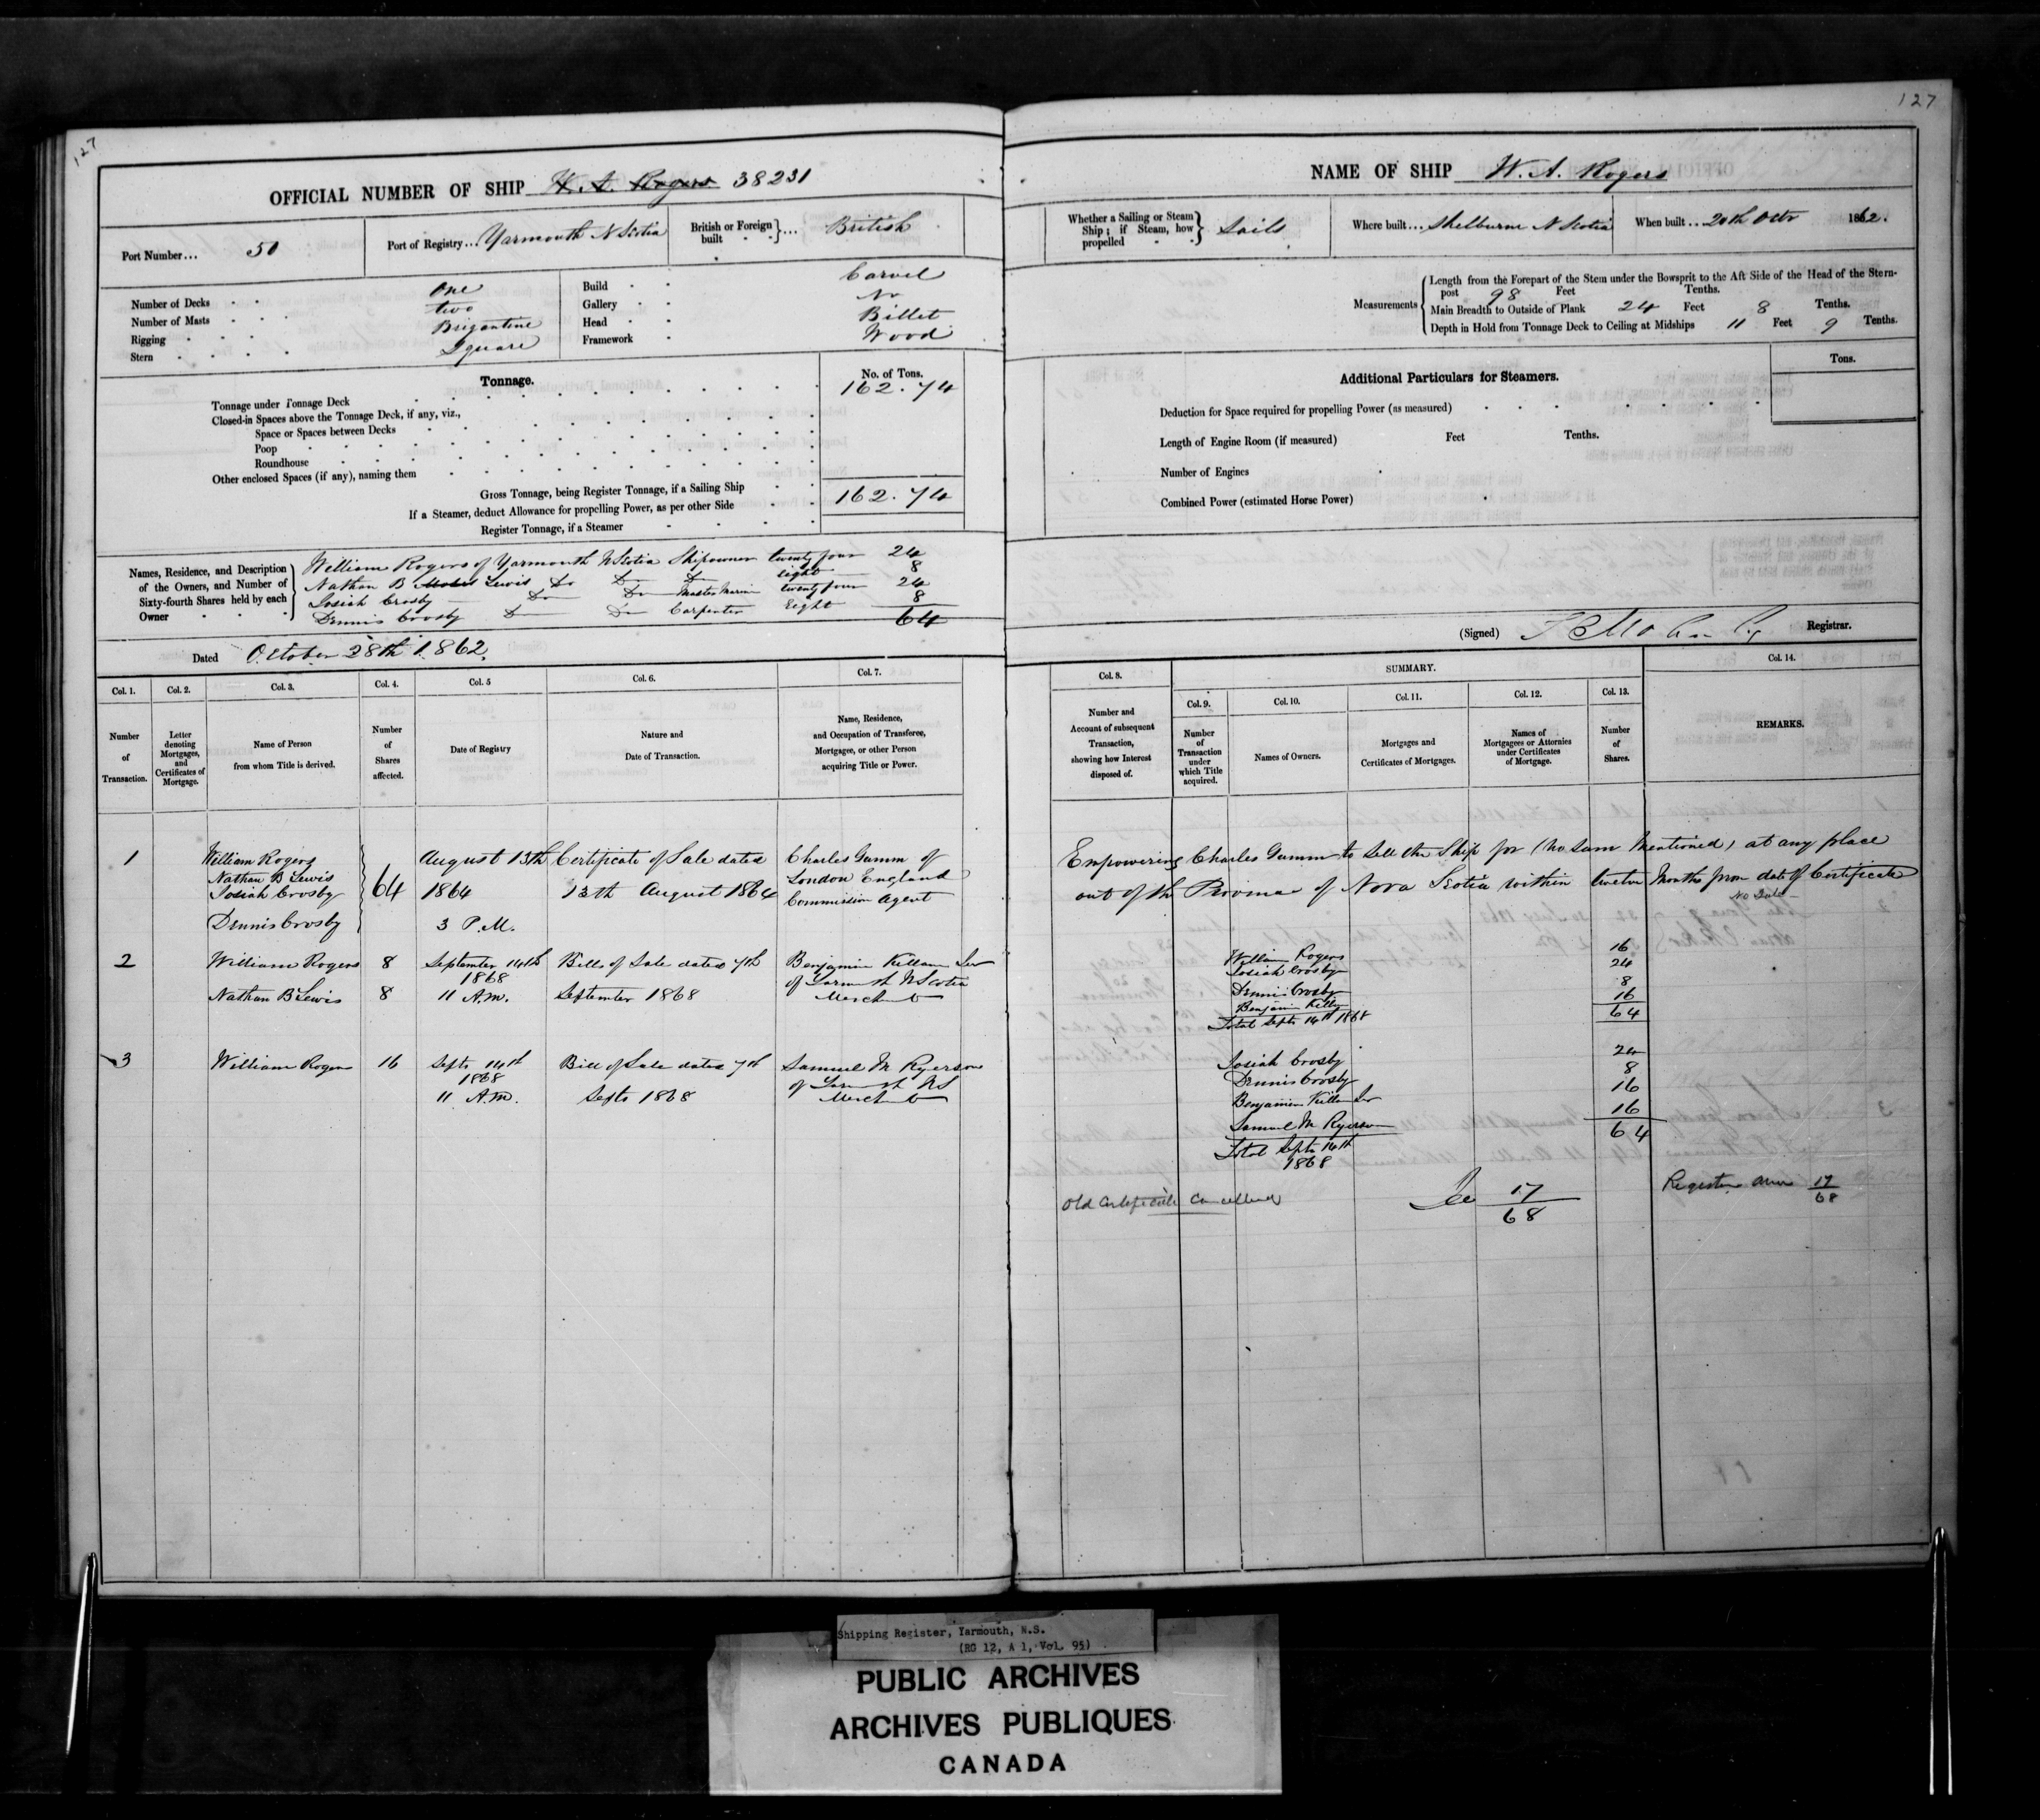 127
OFFICIAL NUMBER OF SHIP W. A. Rogers 38231
Port Number... 50
Port of Registry... Yarmouth N Scotia
British or Foreign built ... British
Number of Decks One
Number of Masts two
Rigging Brigantine
Stern Square
Build Carvel
Gallery No
Head Billet
Framework Wood
Tonnage.
No. of Tons.
Tonnage under Tonnage Deck 162.74
Closed-in Spaces above the Tonnage Deck, if any, viz.,
Space or Spaces between Decks
Poop
Roundhouse
Other enclosed Spaces (if any), naming them
Gross Tonnage, being Register Tonnage, if a Sailing Ship 162.74
If a Steamer, deduct Allowance for propelling Power, as per other Side
Register Tonnage, if a Steamer
Names, Residence, and Description of the Owners, and Number of Sixty-fourth Shares held by each Owner
William Rogers of Yarmouth N Scotia Shipowner twenty four 24
Nathan B Lewis Do Do Do eight 8
Josiah Crosby Do Do Master Marin twenty four 24
Dennis Crosby Do Do Carpenter Eight 8
64
Dated October 28th 1862.
Col. 1.
Number of Transaction.
Col. 2.
Letter denoting Mortgages, and Certificates of Mortgage.
Col. 3.
Name of Person from whom Title is derived.
Col. 4.
Number of Shares affected.
Col. 5
Date of Registry
Col. 6.
Nature and Date of Transaction.
Col. 7.
Name, Residence, and Occupation of Transferee, Mortgagee, or other Person acquiring Title or Power.
1
William Rogers
Nathan B Lewis
Josiah Crosby
Dennis Crosby
64
August 13th
1864
3 P.M.
Certificate of Sale dated
13th August 1864
Charles Gumm of
London England
Commission Agent
2
William Rogers 8
Nathan B Lewis 8
September 14th
1868
11 A.M.
Bills of Sale dated 7th
September 1868
Benjamin Killam Senr
of Yarmouth N Scotia
Merchant
3
William Rogers 16
Septr 14th
1868
11 A.M.
Bill of Sale dated 7th
Septr 1868
Samuel M Ryerson
of Yarmouth NS
Merchant
127
NAME OF SHIP W. A. Rogers
Whether a Sailing or Steam Ship; if Steam, how propelled Sails
Where built... Shelburne N Scotia
When built .. 20th Octr 1862.
Measurements
Length from the Forepart of the Stem under the Bowsprit to the Aft Side of the Head of the Stern-
post 98 Feet Tenths.
Main Breadth to Outside of Plank 24 Feet 8 Tenths.
Depth in Hold from Tonnage Deck to Ceiling at Midships 11 Feet 9 Tenths.
Additional Particulars for Steamers.
Tons.
Deduction for Space required for propelling Power (as measured)
Length of Engine Room (if measured) Feet Tenths.
Number of Engines
Combined Power (estimated Horse Power)
(Signed) Registrar.
Col. 8.
Number and Account of subsequent Transaction, showing how Interest disposed of.
SUMMARY.
Col. 9.
Number of Transaction under which Title acquired.
Col. 10.
Names of Owners.
Col. 11.
Mortgages and Certificates of Mortgages.
Col. 12.
Names of Mortgagees or Attornies under Certificates of Mortgage.
Col. 13.
Number of Shares.
Col. 14.
REMARKS.
Empowering Charles Gumm to sell the Ship for (no sum mentioned) at any place
out of the Province of Nova Scotia within twelve Months from date of Certificate
No Sale
William Rogers 16
Josiah Crosby 24
Dennis Crosby 8
Benjamin Killam 16
Total Septr 14th 1868 64
Josiah Crosby 24
Dennis Crosby 8
Benjamin Killam Senr 16
Samuel M Ryerson 16
Total Septr 14th 64
1868
Old Certificate Cancelled
See 17/68
Register anew 17/68
Shipping Register, Yarmouth, N.S.
(RG 12, A 1, Vol. 95)
PUBLIC ARCHIVES
ARCHIVES PUBLIQUES
CANADA